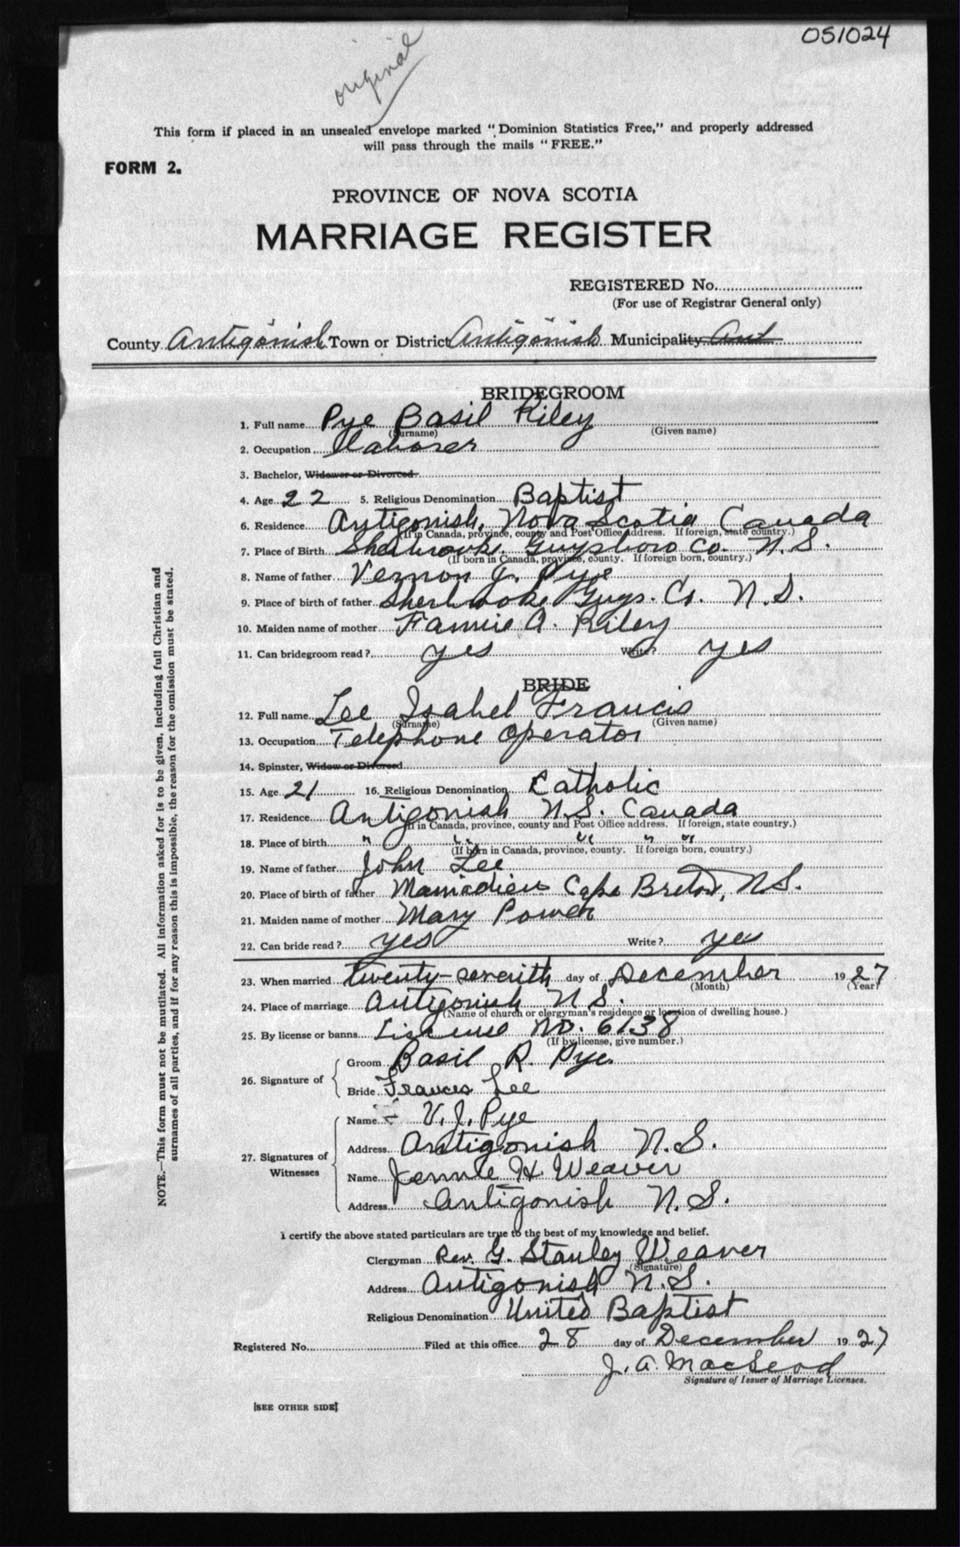 051024
original
This form if placed in an unsealed envelope marked "Dominion Statistics Free," and properly addressed
will pass through the mails "FREE."
FORM 2.
PROVINCE OF NOVA SCOTIA
MARRIAGE REGISTER
REGISTERED No.
(For use of Registrar General only)
County Antigonish Town or District Antigonish Municipality Ant
BRIDEGROOM
1. Full name Pye Basil Riley
(Surname) (Given name)
2. Occupation Laborer
3. Bachelor, Widower or Divorced
4. Age 22 5. Religious Denomination Baptist
6. Residence Antigonish, Nova Scotia Canada
(If in Canada, province, county and Post Office Address. If foreign, state country.)
7. Place of Birth Sherbrooke Guysboro Co. N.S.
(If born in Canada, province, county. If foreign born, country.)
8. Name of father Vernon J. Pye
9. Place of birth of father Sherbrooke Guys. Co. N.S.
10. Maiden name of mother Fannie A. Riley
11. Can bridegroom read? yes Write? yes
BRIDE
12. Full name Lee Isabel Francis
(Surname) (Given name)
13. Occupation Telephone operator
14. Spinster, Widow or Divorced
15. Age 21 16. Religious Denomination Catholic
17. Residence Antigonish N.S. Canada
(If in Canada, province, county and Post Office address. If foreign, state country.)
18. Place of birth " " " " "
(If born in Canada, province, county. If foreign born, country.)
19. Name of father John Lee
20. Place of birth of father Cape Breton, N.S.
21. Maiden name of mother Mary Power
22. Can bride read? yes Write? yes
23. When married twenty-seventh day of December 1927
(Month) (Year)
24. Place of marriage Antigonish N.S.
(Name of church or clergyman's residence or location of dwelling house.)
25. By license or banns License No. 6138
(If by license, give number.)
26. Signature of
Groom Basil R. Pye
Bride Frances Lee
27. Signatures of Witnesses
Name V. J. Pye
Address Antigonish N.S.
Name Jennie H. Weaver
Address Antigonish N.S.
I certify the above stated particulars are true to the best of my knowledge and belief.
Clergyman Rev. G. Stanley Weaver
(Signature)
Address Antigonish N.S.
Religious Denomination United Baptist
Registered No. Filed at this office 28 day of December 1927
J. A. MacLeod
Signature of Issuer of Marriage Licenses.
[SEE OTHER SIDE]
NOTE.—This form must not be mutilated. All information asked for is to be given, including full Christian and
surnames of all parties, and if for any reason this is impossible, the reason for the omission must be stated.